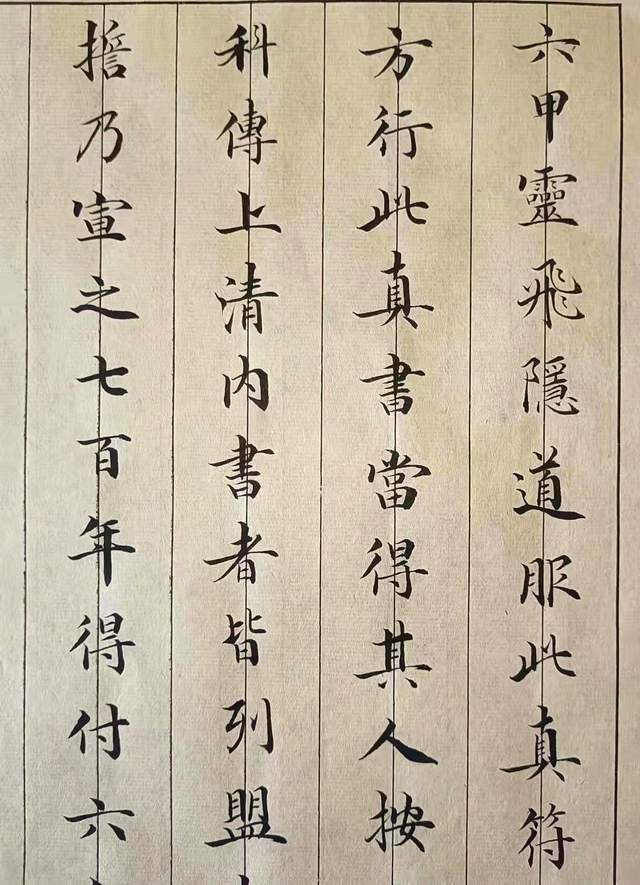 六甲靈飛隱道服此真符
方行此真書當得其人按
科傳上清內書者皆列盟
擔乃宣之七百年得付六